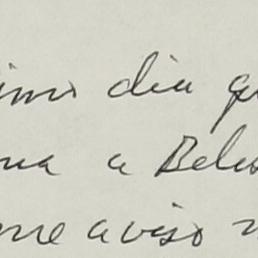 imo dia qu
na a Beles
me aviso n